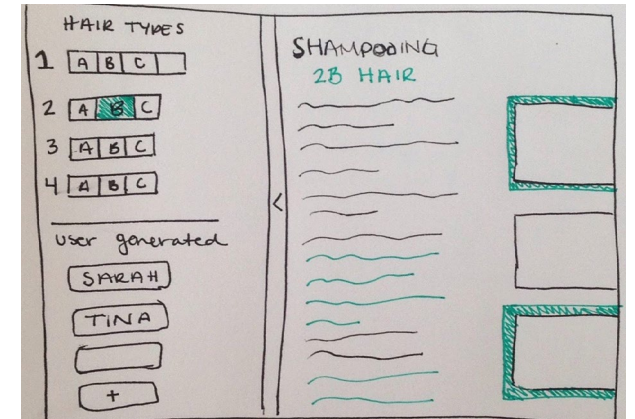 HAIR TYPES
1 A B C
2 A B C
3 A B C
4 A B C
user generated
SARAH
TINA
+
<
SHAMPOOING
2B HAIR